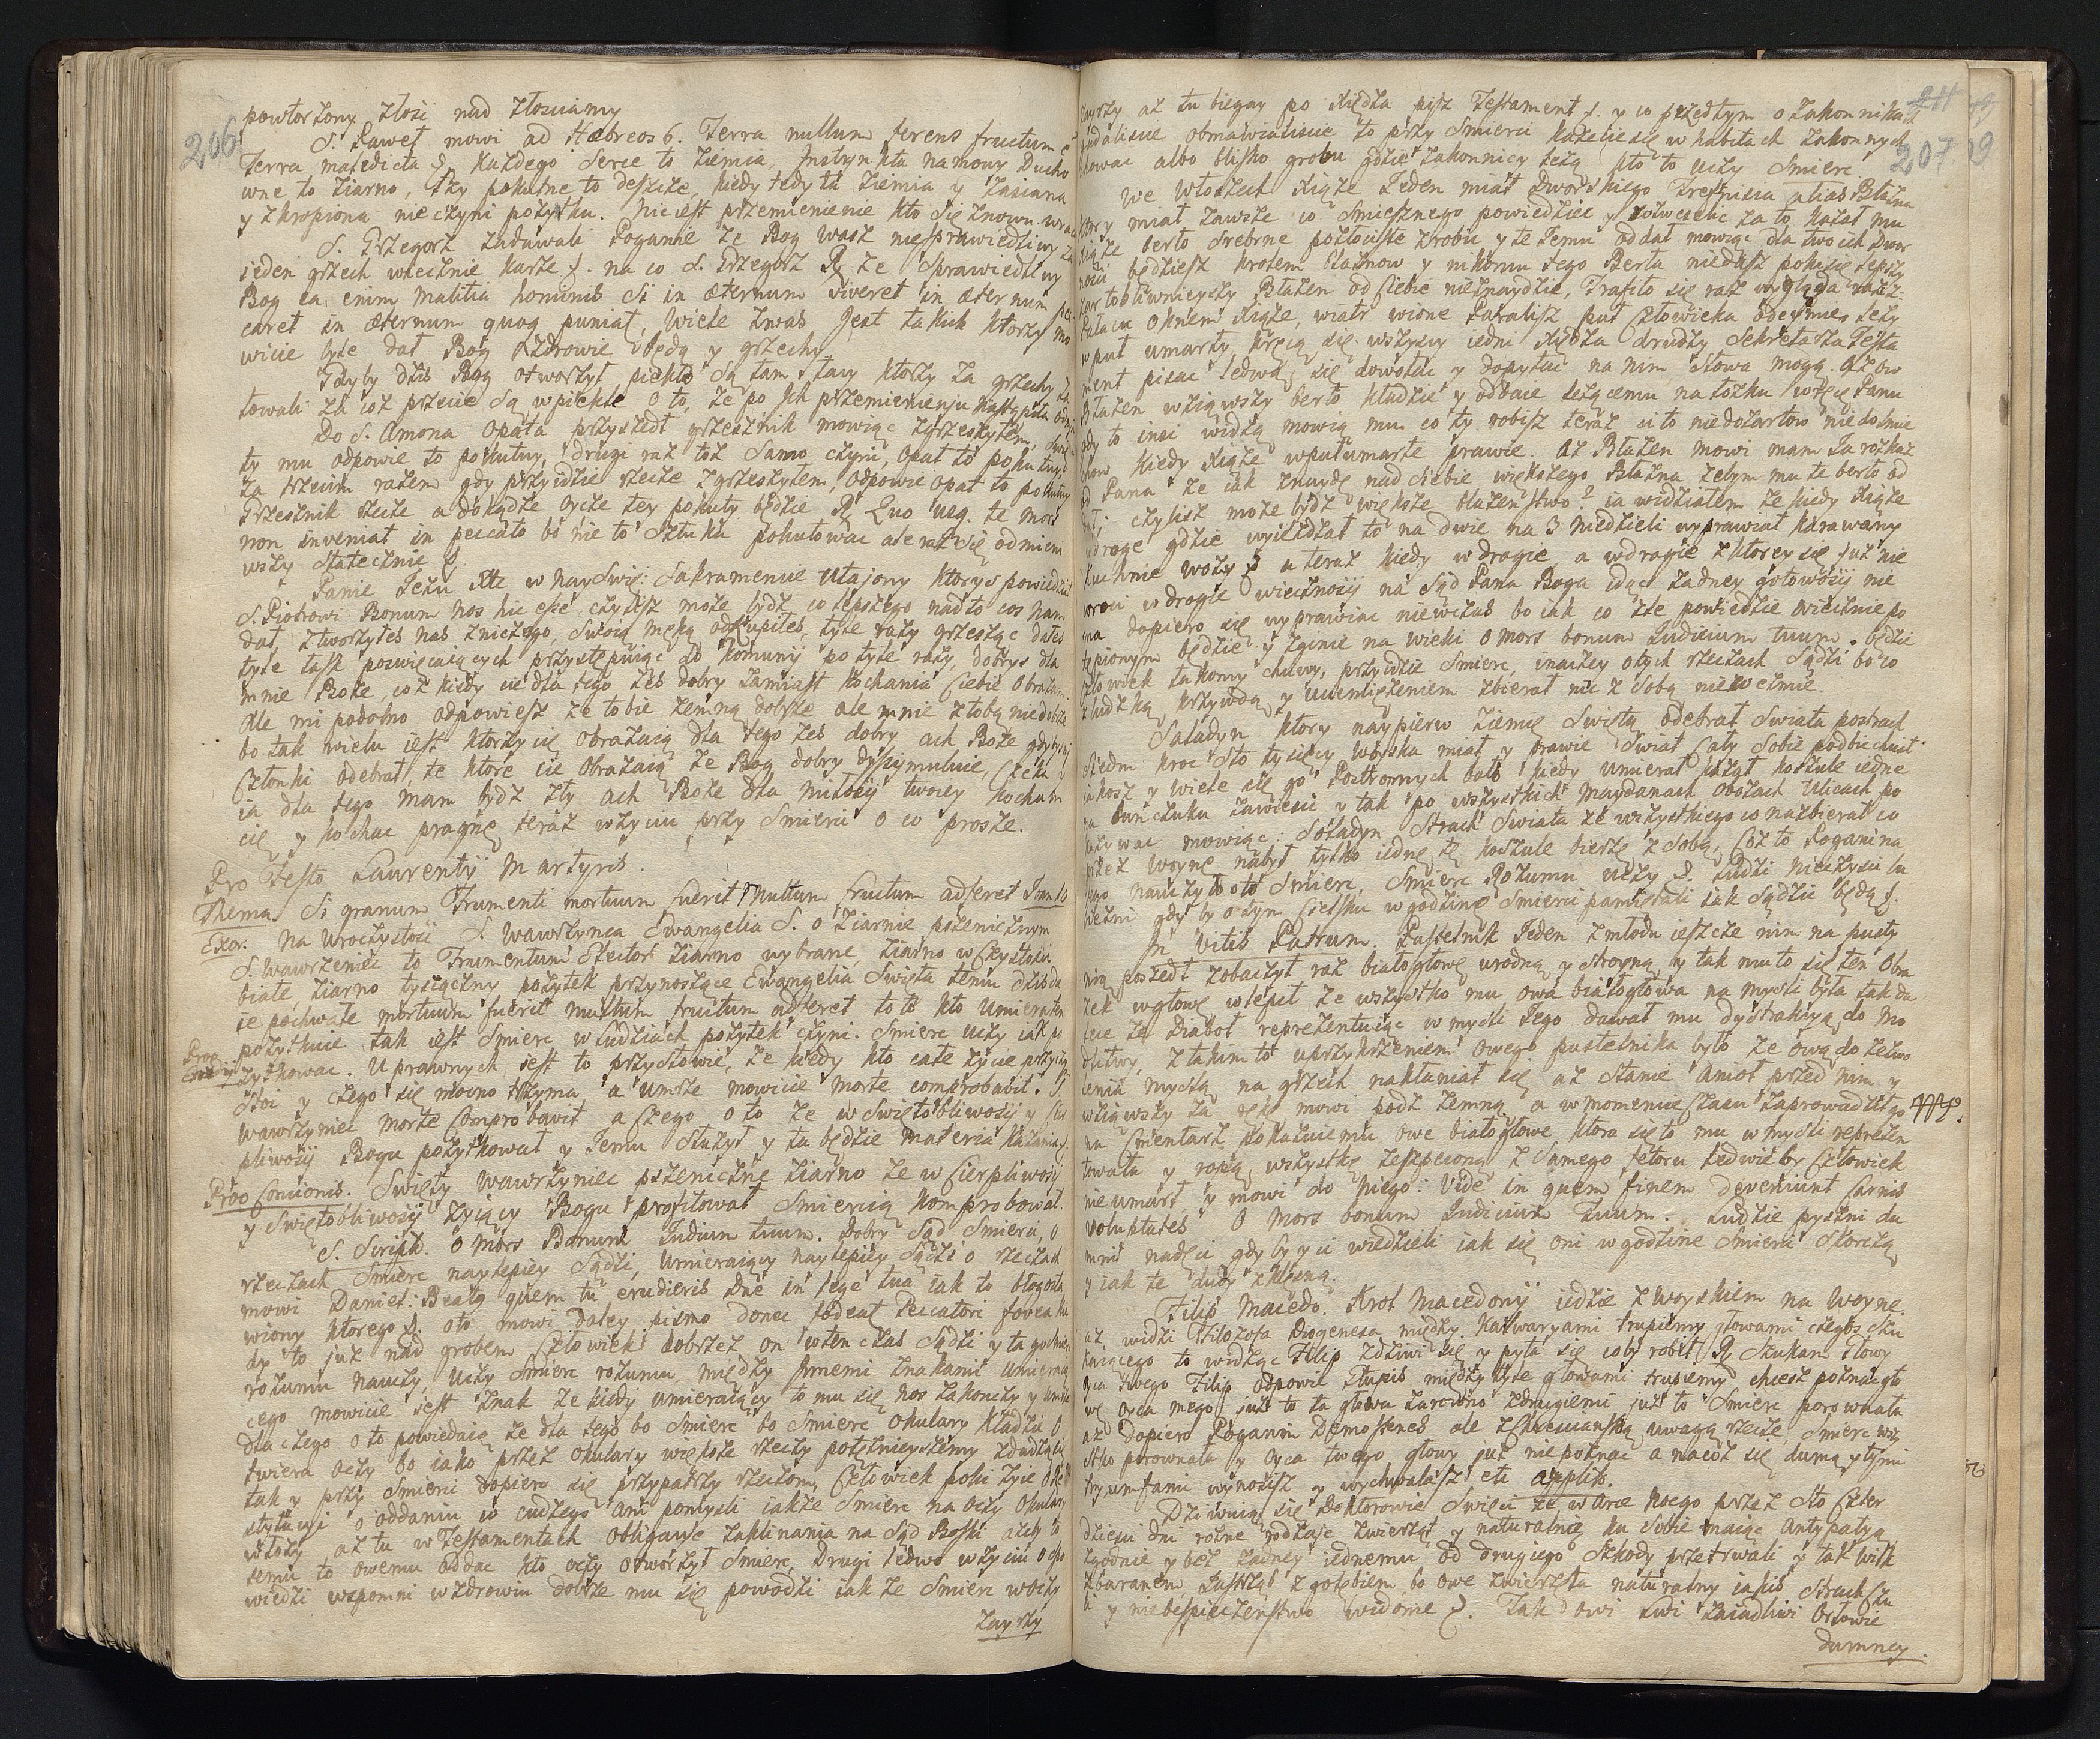 206
powtorzony złosi nad złosciamy
S. Paweł mowi ad Hæbreos 6. Terra nullum ferens fructum e
Terra maledicta S. Każdego Serce to Ziemia, Instynkta namowy Ducho
wne to ziarno, łzy pokutne to deszcze, kiedy tedy ta Ziemia y zasiana
y skropiona nieczyni pożytku. Nic iest przemienienie kto się znowu wraca
S. Grzegorz zadawali Poganie że Bog wasz niesprawiedliwy za
ieden grzech wiecznie karze S. na co S. Grzegorz R. że sprawiedliwy
Bog ea enim malitia hominis si in æternum viveret in æternum pec
caret in æternum quoq puniat, Wiele zwas Jest takich ktorzy mo
wicie byle dał Bog Zdrowie będą y grzechy
Gdyby dzis Bog otworzył piekło Są tam tacy ktorzy za grzechy
towali za coz przecie są wpiekle o to, że po Jch przemienieniu nastąpiła odmi
Do S. Amona Opata przyszedł grzesznik mowiąc zgrzeszyłem, swię
ty mu odpowie to pokutuy, drugi raz toż Samo czyni, Opat to pokutuy
Za trzecim razem gdy przyidzie rzecze zgrzeszyłem, odpowie opat to pokutuy
Grzesznik rzecze a dokądże oycze tey pokuty będzie R. Quo usq. te mors
non inveniat in peccato bo nie to Sztuka pokutowac ale raz się odmieni
wszy Statecznie S.
Panie Jezu Xte w Nayswię: Sakramencie Utajony ktorys powiedział
S. Piotrowi Bonum nos hic esse, czylisz może bydz co lepszego nadto cos nam
dał, ztworzyłes nas zniczego, swoią męką odkupiłes, tyle razy grzesząc dałes
tyle łask poswięcaiących przystępuiąc do Komunij potyle razy, dobrys dla
mnie Boże, coż kiedy cie dla tego żeś dobry zamiast kochania Ciebie obrażam
Ale mi podobno odpowiesz ze tobie zemną dobrze ale mnie ztobą niedobrze
bo tak wielu iest ktorzy cię obrażaią dla tego żes dobry ach Boże gdybys
Członki odebrał, te ktore cie obrażaią że Bog dobry dyssymuluie, Czeka y
ia dla tego mam bydz zły ach Boże dla miłosij twoiey kocham
cię y kochac pragnę teraz wżyciu przy Smierci o co proszę.
Pro Festo Laurentij Martyris.
Thema. Si granum Frumenti mortuum fuerit Multum fructum adferet Joan. 10
Exor. Na Uroczystosi S. Wawrzynca Ewangelia S. o Ziarnie pszenicznym
S. Wawrzeniec to Frumentum Electorum Ziarno wybrane, Ziarno w Czystosci
białe, Ziarno tysiączny pożytek przynoszące Ewangelia Swięta temu dzis da
ie pochwałe mortuum fuerit multum fructum adferet to to kto umiera ten
pożytkuie tak iest Smierc w Ludziach pożytek czyni. Smierc uczy iak po
Prop Exordij żytkowac. U prawnych iest to przysłowie, że kiedy kto całe życie przy czym
stoi y czego się mocno trzyma, a umrze mowicie Morte comprobavit. S.
Wawrzyniec morte Comprobavit a czego oto że w swiętobliwosij y Cier
pliwosij Bogu pożytkował y Temu Służył y ta będzie materia kazania S.
Prop Concionis. Swięty Wawrzyniec pszeniczne Ziarno że w Cierpliwosij
y Swiętobliwosij żyiący Bogu profitował smiercią komprobował.
S. Script. O Mors Bonum Judicium tuum. Dobry Sąd Smierci, o
rzeczach Smierc naylepiey Sądzi, Umieraiący naylepiey Sądzi o rzeczach
mowi Daniel: Beatq quem tu erudieris Dne in lege tua iak to błogosła
wiony ktorego S. oto mowi daley pismo donec fodeat Peccatori fovea kie
dy to już nad grobem Człowieki dobrzez on wten czas Sądzi y ta go Smierc
rozumu nauczy, Uczy Smierc rozumu, między Jnnemi znakami umieraią
cego mowicie iest znak że kiedy umieraiący to mu się nos zakonczy y umiera
dla czego oto powiedaią że dla tego bo Smierc to Smierc okulary kładzie O
twiera oczy bo iako przez okulary większe rzeczy potężnieyszemy zdadzą się
tak y przy Smierci dopiero się przypatrzy rzeczom, Człowiek poki żyie o Re
stytucyi o oddaniu co cudzego ani pomysli iakże Smierc na oczy okulary
włoży aż tu w Testamentach obliguie zaklinania na Sąd Boski ażeby to
temu to owemu oddac kto oczy otworzył Smierc, Drugi ledwo wżyciu o spo
wiedzi wspomni wzdrowiu dobrze mu się powodzi iak że Smierc woczy
zayrzy

211 49
207. 19
zayrzy aż tu biegay po Xiędza pisz Testament S. y co przedtym o zakonnikach
gadaliscie obmawialiscie to przy Smierci każecie się w habitach zakonnych
chowac albo blisko grobu gdzie Zakonnicy leżą kto to uczy Smierc.
We Włoszech Xiąże Jeden miał Dworskiego trefnisia alias Błazna
ktory miał zawsze co smiesznego powiedziec y rozweselic za to kazał mu
Xiąże berło srebrne pozłociste zrobic y te Temu oddał mowiąc dla twoich Dwor
nosci będziesz krolem Błaznow y nikomu tego Berła niedasz pokisię lepszy
żartobliwnieyszy Błazen od Ciebie nieznaydzie, Trafiło się raz wygląda wasz:
Pałacu oknem Xiąże, wiatr wione Paraliż puł Człowieka odeymie, leży
wpuł umarły, kręcą się wszyscy iedni Xiędza drudzy Sekretarza Testa
ment pisac ledwo się dowołac y dopytac na nim słowa mogą. Aż ow
Błazen wziąwszy berło kładzie y oddaie leżącemu na łożku wręce Panu
gdy to insi widzą mowią mu co ty robisz teraz ci to niedożartow niedosmie
chow kiedy Xiąże wpułumarłe prawie. Aż Błazen mowi mam Ja rozkaz
od Pana że iak znaydę nad siebie większego Błazna żebym mu te berło od
dał. czylisz może bydz większe błazenstwo? ia widziałem że kiedy Xiąże
wdrogę gdzie wyieżdżał to na dwie na 3 niedzieli wyprawiał karawany
Kuchnie wozy S a teraz kiedy wdrogie a wdrogie zktorey się już nie
wroci wdrogie wiecznosij na Sąd Pana Boga idąc żadney gotowosij nie
ma dopiero się wyprawiac niewczas bo iak co złe powiedzie wiecznie po
tępionym będzie y zginie na wieki o mors bonum Judicium tuum. będzie
człowiek łakomy chciwy, przyidzie Smierc, inaczey otych rzeczach Sądzi bo co
zludzką krzywdą y uciemiężeniem zbierał nic z sobą niewezmie.
Saladyn ktory naypierw ziemię Swiętą odebrał swiata postrach
siedm kroc sto tysięcy Woyska miał y prawie Swiat Cały sobie podbiehnił
iakosz y wiele się go Postronnych bało kiedy umierał kazał koszule iedne
na Bunczuku zawiesic y tak po wszystkich Maydanach Obozach Ulicach po
kazywac mowiąc: Soladyn Strach Swiata że wszystkiego co nazbierał co
przez Woyne nabył tylko iedne tę koszule bierze z sobą, Coż to Poganina
tego nauczyło oto Smierc, Smierc Rozumu uczy S. Ludzi nieczysci lu
bieżni gdy by o tym Cielsku w godzine Smierci pamiętali iak Sądzic będą S.
In Vitis Patrum. Pustelnik Jeden zmłodu ieszcze nim na pusty
nią poszedł zobaczył raz białogłowę urodną y stroyną y tak mu to się ten obra
zek wgłowę wlepił że wszystko mu owa białogłowa na mysli była tak da
lece że Diaboł reprezentuiąc w mysli Jego dawał mu dystrakcyą do Mo
dlitwy, z takim to uprzykrzeniem owego pustelnika było że ową do zezwo
lenia myslą na grzech nakłaniał się aż stanie Anioł przed nim y
wziąwszy za rękę mowi podz zemną a w momencie Czasu zaprowadził go
na Cmentarz pokażuiemu owe białogłowe ktora się to mu w mysli reprezen
towała y ropią wszystkę zeszpeconą z samego fetoru ledwie by Człowiek
nie umarł y mowi do niego: Vide in quem finem deveniunt Carnis
voluptates O Mors bonum Judicium tuum. Ludzie pyszni du
mni nadęci gdy by y ci wiedzieli iak się oni w godzine smierci skorczą
y iak te dudy zklęsną.
Filip Macedo. Krol Macedonij iedzie z Woyskiem na Woyne
aż widzi Filozofa Diogenesa między Kalwaryami trupiemy głowami czegos szu
kaiącego to widząc Filip zdziwi się y pyta się coby robił R. Szukam Głowy
oyca twego Filip odpowie Głupis między tyle głowami trupiemy chcesz poznac gło
wę oyca mego już to ta głowa zarowno zdrugiemi już to Smierc porownała
aż dopiero Poganin Demostenes ale z Chrzescianską uwagą rzecze, Smierc wszy
stko porownała y Oyca twego głowy już niepoznac a nacoż się dumą y tymi
tryumfami wynosisz y wychwalasz etc applit.
Dziwuią się Doktorowie Swięci że w Arce Noego przez Sto Czter
dziesci dni rozne rodzaje zwierząt y naturalnię ku sobie maiąc Antypatyą
zgodnie y bez żadney iednemu od drugiego szkody przetrwali y tak wilk
zbaranem Jastrząb z gołębiem bo owe zwierzęta naturalny iakis strach Czu
li y niebespieczenstwo widome S. Tak owi Lwi zaiadliwi Orłowie
dumney